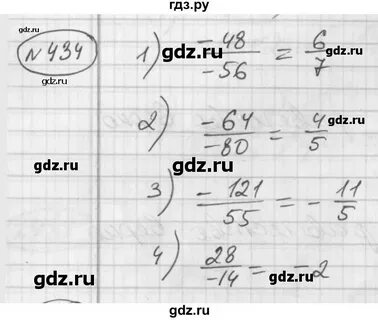 гдз.ру
№434
1) -48/-56 = 6/7
gdz.ru gdz.ru gdz.ru
2) -64/-80 = 4/5
gdz.ru gdz.ru
3) -121/55 = -11/5
gdz.ru gdz.ru gdz.ru
4) 28/-14 = -2
gdz.ru gdz.ru gdz.ru
гдз.ру